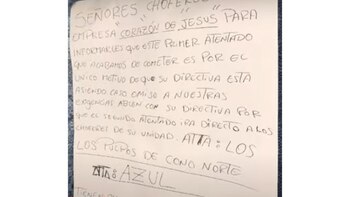 SEÑORES CHOFERES
EMPRESA "CORAZÓN DE "JESUS" PARA
INFORMARLES QUE ESTE PRIMER ATENTADO
QUE ACABAMOS DE COMETER ES POR EL
UNICO MOTIVO DE QUE SU DIRECTIVA ESTA
ASIENDO CASO EMISO A NUESTRAS
EXIGENCIAS ABLEN CON SU DIRECTIVA POR
QUE EL SEGUNDO ATENTADO IRA DIRECTO A LOS
CHOFERES DE SU UNIDAD. ATTA: LOS
LOS PULPOS DE CONO NORTE
ATTA: AZUL